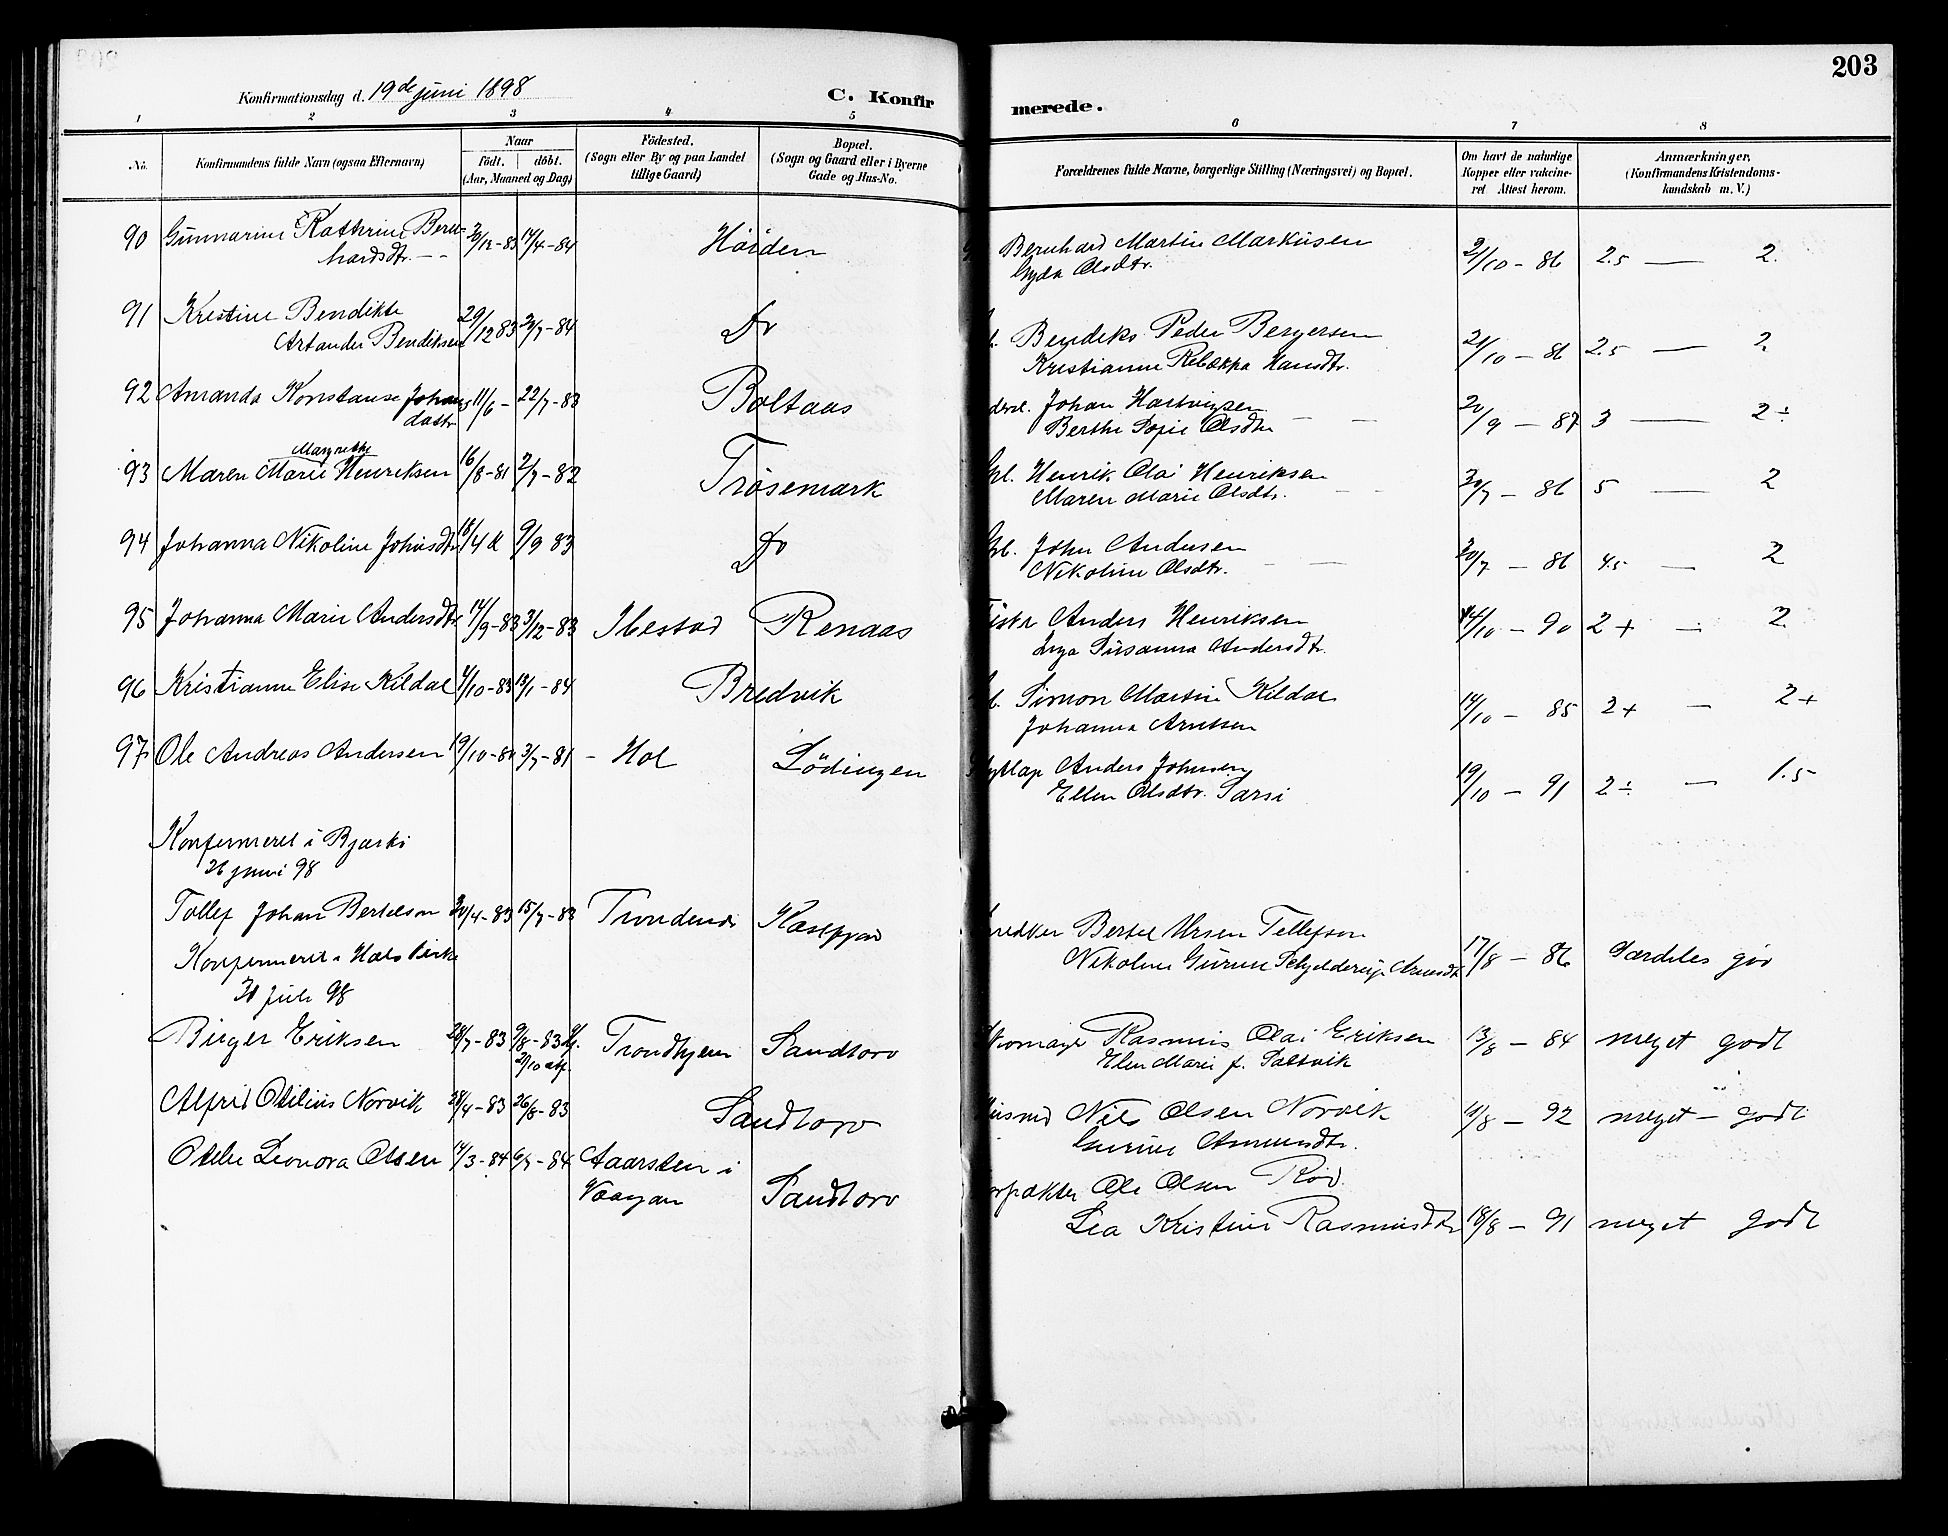 203
Konfirmationsdag d. 19de juni 1898
C. Konfirmerede.
1 2 3 4 5 6 7 8
No. Konfirmandens fulde Navn (ogsaa Efternavn) Naar födt. döbt. (Aar, Maaned og Dag) Födested. (Sogn eller By og paa Landet tillige Gaard) Bopæl. (Sogn og Gaard eller i Byerne Gade og Hus-No. Forældrenes fulde Navne, borgerlige Stilling (Næringsvei) og Bopæl. Om havt de naturlige Kopper eller vakcineret Attest herom. Anmærkninger, (Konfirmandens Kristendomskundskab m. V.)
90 Gunnarine Kathrine Bern- /12-83 14/4-84 Bernhard Martin Markusen 21/10-86 2.5 — 2.
hardsdtr. Gyda Olsdtr.
91 Kristine Bendikte 29/12 83 /7-84 Do Bendiks Peder Bergersen 21/10-86 2.5 — 2
Artander Bendiksen Kristianne Rebækka Hansdtr.
92 Amanda Konstanse Johans 11/6- 22/7-83 Boltaas Johan Hartvigsen 20/9-87 3 — 2÷
datr Berthe Sofie Olsdtr
93 Maren Marie Henriksen 16/8-81 2/7-82 Trøsemark Henrik Olai Henriksen 20/7-86 5 — 2
Magrethe Maren Marie Olsdtr.
94 Johanna Nikoline Johnsdtr 18/4 9/9 83 Do John Andersen 20/7-86 4.5 — 2
Nikoline Olsdtr.
95 Johanna Marie Andersdtr 14/9-83 3/12-83 Ibestad Renaas Fiskr Anders Henriksen 14/10-90 2+ — 2
Inga Susanna Andersdtr.
96 Kristianne Elise Kildal /10-83 13/1-84 Bredvik Simon Martin Kildal 14/10-85 2+ — 2+
Johanna Arntsen
97 Ole Andreas Andersen 19/10-80 3/7-81 - Hol Lödingen Anders Johnsen 19/10-91 2÷ — 1.5
Ellen Olsdtr. Sarri
Konfirmeret i Bjarkö
26 juni 98
Tollef Johan Bertelsen 20/4-83 15/7-83 Trondenes Bertel Ursen Tellefsen 17/8-86 Særdeles god
Nikoline Gurine Schjelderup
Konfirmeret i Hols Kirke
31 Juli 98
Birger Eriksen 28/7-83 9/8-83 Trondhjem Sandtorv Rasmus Olai Eriksen 13/8-84 meget godt
Elen Marie f. Saltvik
Alfred Otilius Norvik 28/4-83 26/8-83 Sandtorv Nils Olsen Norvik 11/8-92 meget - godt
Gurine Asmundtr.
Otelie Leonora Olsen 14/3-84 6/7-84 Aarsten i Vaagan Sandtorv Ole Olsen Röd.
Lea Kristine Rasmusdtr 18/8-91 meget godt